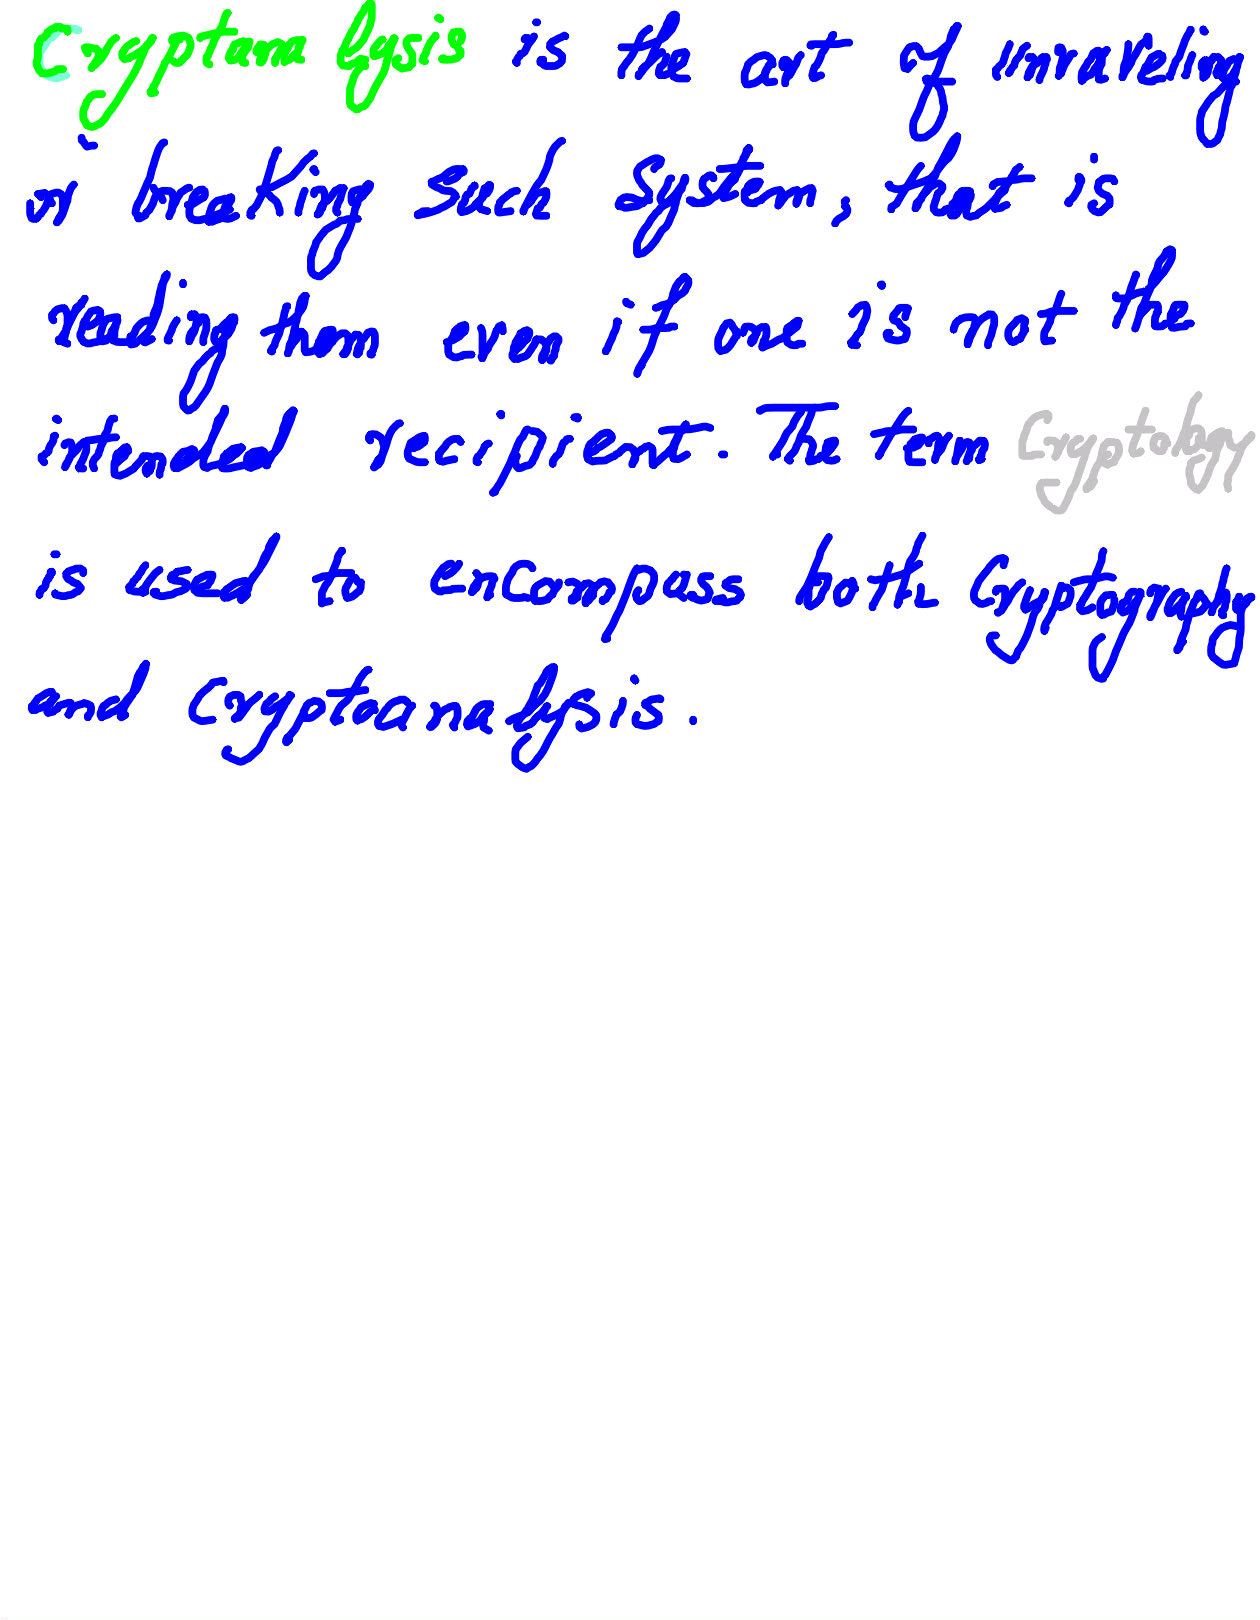 Cryptanalysis is the art of unraveling
or breaking such system, that is
reading them even if one is not the
intended recipient. The term Cryptology
is used to encompass both Cryptography
and Cryptoanalysis.